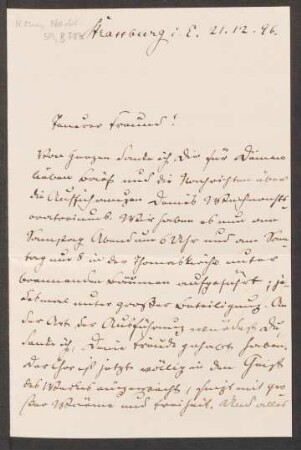 Strassburg i. E. 21.12.96.
Teurer Freund!
Von Herzen danke ich Dir für Deinen
lieben Brief und die Nachrichten über
die Aufführungen Deines Weihnachts-
oratoriums. Wir haben es nun am
Samstag Abend um 6 Uhr und am Sonn-
tag um 5 in der Thomaskirche unter
brennenden Bäumen aufgeführt, je-
desmal unter großer Beteiligung. An
der Art der Ausführung würdest Du,
denke ich, Deine Freude gehabt haben.
Der Chor ist jetzt völlig in den Geist
des Werkes eingeweiht, singt mit gro-
ßer Wärme und Freiheit. Und alles